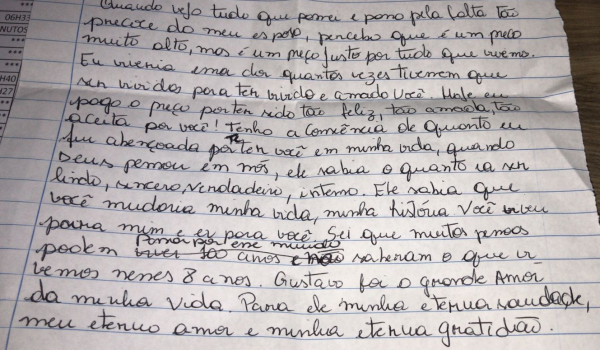 06H33
NUTOS
H40
H27
Quando vejo tudo que passei e passo pela falta tão
precoce do meu esposo, percebo que é um preço
muito alto, mas é um preço justo por tudo que vivemos.
Eu viveria essa dor quantas vezes tivessem que
ser vividas para ter vivido e amado você. Hoje eu
pago o preço por ter sido tão feliz, tão amada, tão
aceita por você! Tenho a consciência de quanto eu
fui abençoada por ter você em minha vida, quando
Deus pensou em nós, ele sabia o quanto ia ser
lindo, sincero, verdadeiro, intenso. Ele sabia que
você mudaria minha vida, minha história Você viveu
para mim e eu para você. Sei que muitas pessoas
passar por esse mundo
podem viver 100 anos e não saberam o que vi_
vemos nesses 8 anos. Gustavo foi o grande Amor
da minha vida. Para ele minha eterna saudade,
meu eterno amor e minha eterna gratidão.